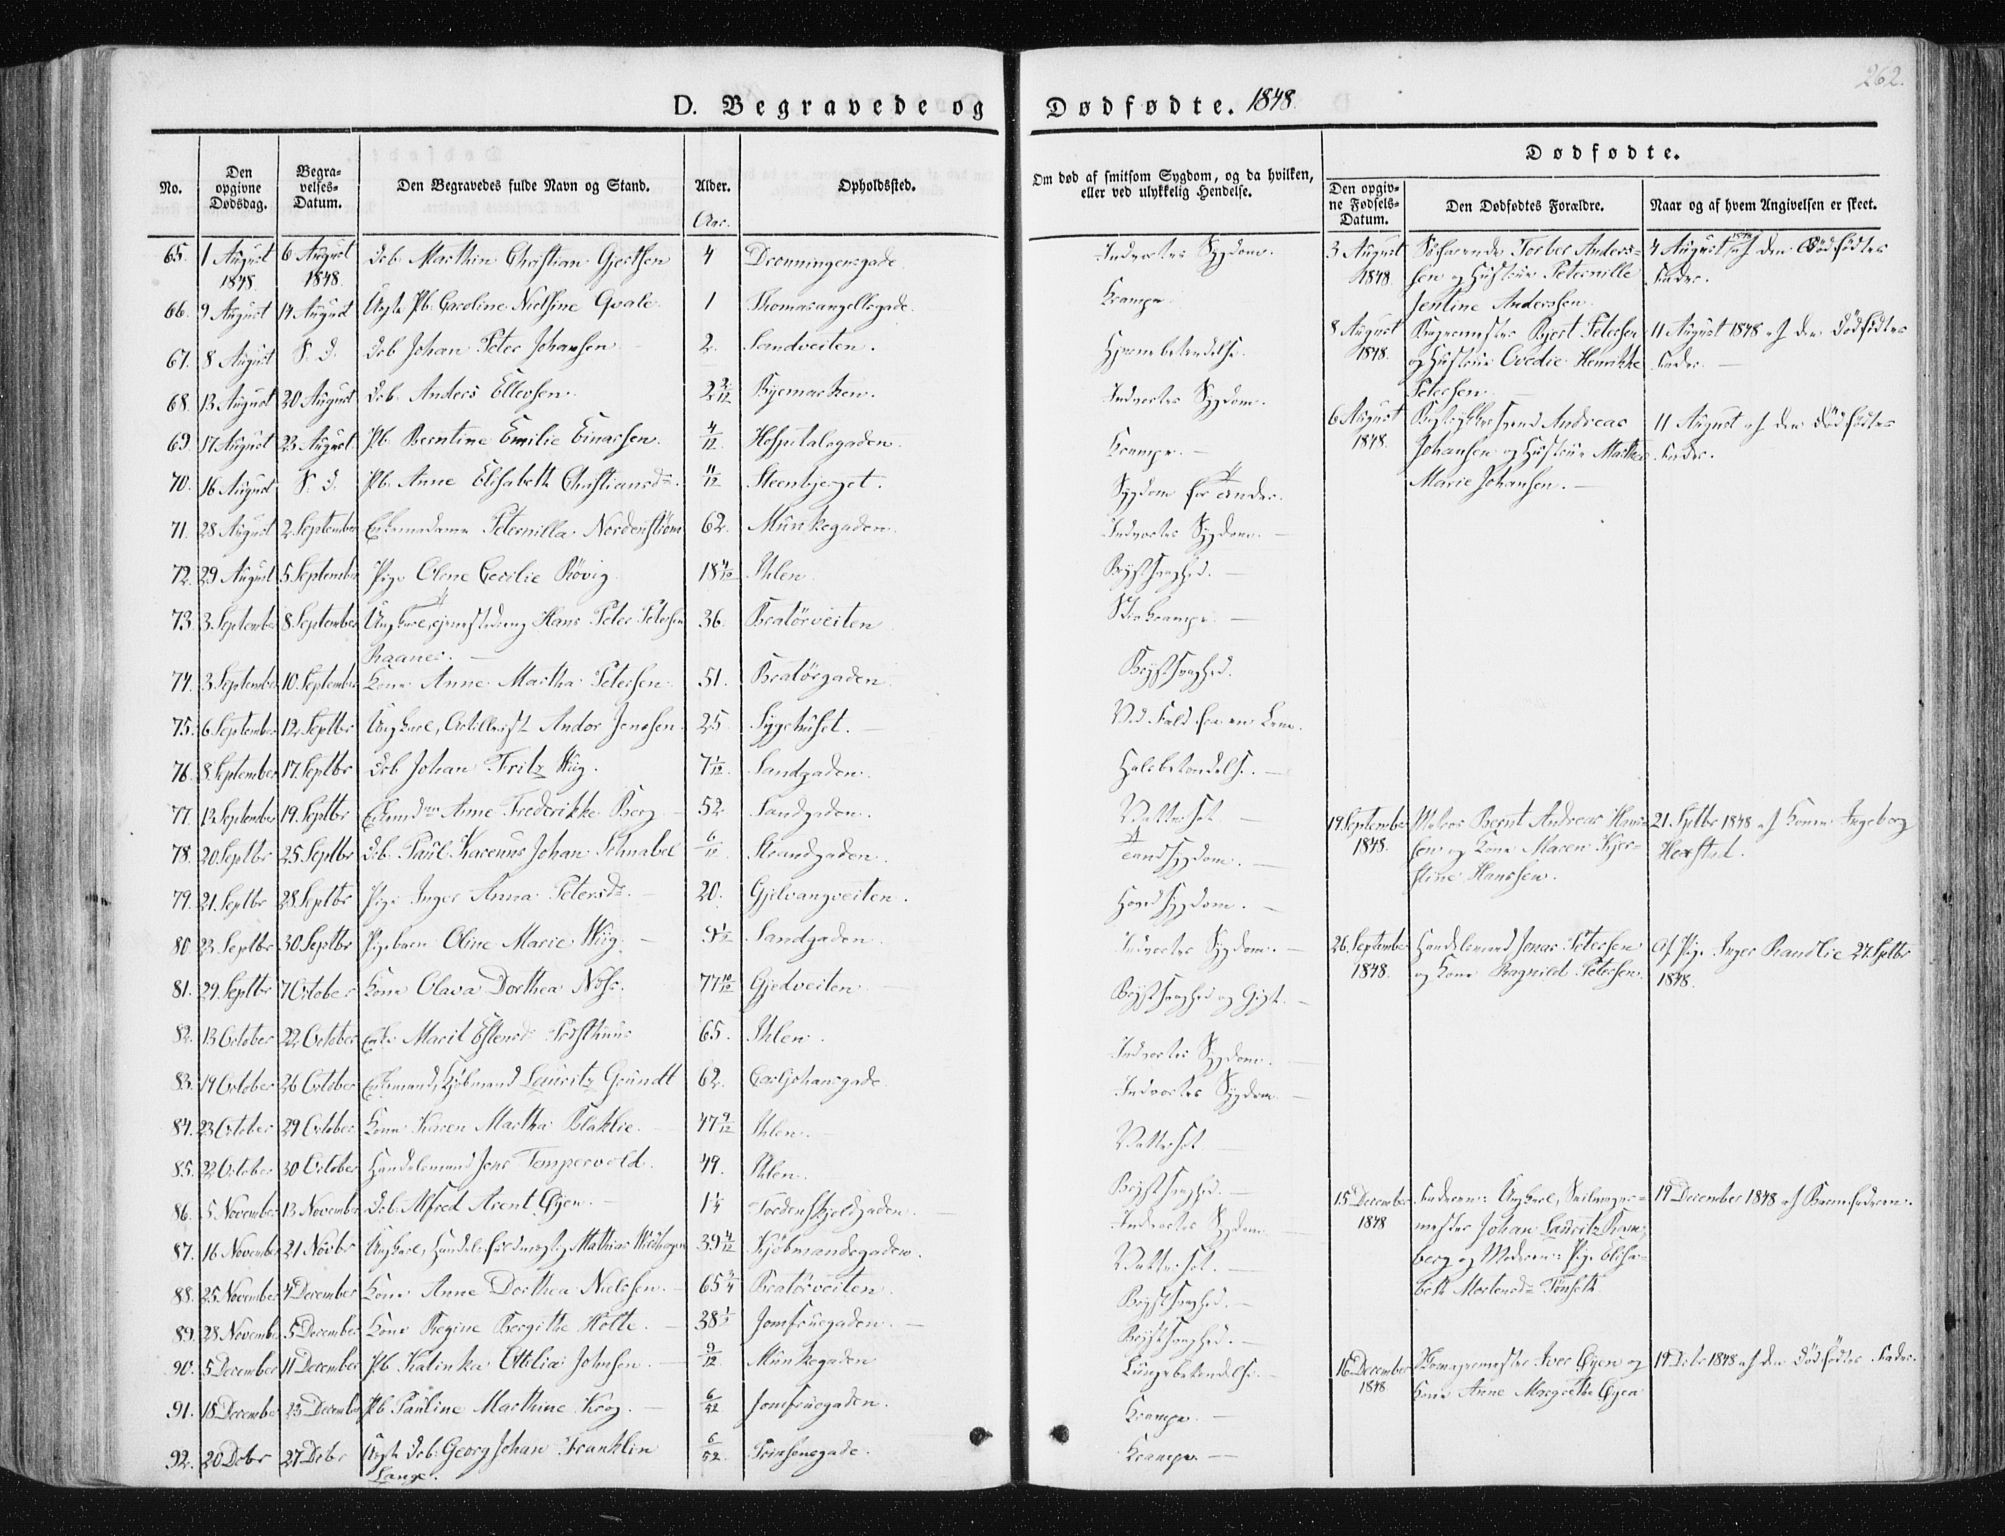 262.
D. Begravede og Dødfødte. 1848.
No.
Den opgivne Dødsdag.
Begravelses-Datum.
Den Begravedes fulde Navn og Stand.
Alder.
Aar.
Opholdssted.
Om død af smitsom Sygdom, og da hvilken, eller ved ulykkelig Hendelse.
Dødfødte.
Den opgivne Fødsels-Datum.
Den Dødfødtes Forældre.
Naar og af hvem Angivelsen er skeet.
65. 1 August 1848 6 August 1848 Db. Marthin Christian Gjertsen 4 Dronningensgade. Indvortes Sygdom.
66. 9 August 14 August Ægte Pb. Caroline Nielsine Qvale. 1 Thomasangellsgade. Krampe
67. 8 August S. D. Db Johan Peter Johansen 2. Sandveiten. Hjernebetendelse.
68. 13 August 20 August Db. Anders Ellevsen. 2 2/12 Byemarken. Indvortes Sygdom.
69. 17 August 23 August Pb. Berntine Emilie Einarsen. 4/12 Hospitalsgaden. Krampe.
70. 16 August S. D. Pb. Anne Elisabeth Christiansd. 11/12 Steenbjerget. Sygdom
71. 28 August 2 September Enkemadame Peternilla Nordenstrøm 62. Munkegaden. Indvortes Sygdom.
72. 29 August 5 September Pige Olene Cecilie Røvig 18 Ihlen. Brystsvaghed.
73. 3 September 8 September Ungkarl, Hans Peter Petersen 36. Bratørveiten
Raanes.
74. 3 September 10 September Kone Anne Martha Petersen 51. Bratørgaden. Brystsvaghed.
75. 6 September 12 Septbr Ungkarl, Artillerist Andor Jensen 25 Sygehuset. Ved Fald fra en
76. 8 September 17. Septbr Db Johan Fritz Wiig. 7 1/12. Sandgaden. Halsbetendelse.
77. 13 September 19. Septbr Anne Frederikke Berg 52 Sandgaden. Vattersot
78. 20 Septbr 25 Septbr Db. Paul Karenus Johan Schnabel 6/12 Strandgaden. Tandsygdom.
79. 21. Septbr 28 Septbr Pige Inger Anna Petersd. 20. Gjelvangveiten.
80 23 Septbr 30 Septbr Pigebarn Oline Marie Wiig. 9 1/2 Sandgaden. Indvortes Sygdom.
81. 29. Septbr 7 October Kone Olava Dorthea 77 10/12 Gjedveiten Brystsvaghed og Gigt.
82. 13 October 22 October Enke Marit Estensd. 65. Ihlen. Indvortes Sygdom.
83. 19 October 26 October Enkemand, Kjøbmand Lauritz Grundt 62. Carljohansgade. Indvortes Sygdom
84. 23 October 29 October. Kone Karen Martha Blaklie. 47 9/12 Ihlen. Vattersot
85. 22 October 30 October Handelsmand Jens Tempervold. 49. Ihlen. Brystsvaghed.
86. 5 November 13 November Db. Alfred Arent Øyen. Tordenskjoldgaden. Indvortes Sygdom
87. 16 November 21 Novbr Ungkarl, Handelsfuldmegtig Mathias 39 Kjøbmandsgaden. Vattersot.
88. 25 November 4 December Kone Anne Dorthea Nielsen. 65 Bratørveiten. Brystsvaghed.
89. 28 November 5 December Kone Regine Bergithe Holte. 38 1/2 Jomfruegaden. Brystsvaghed.
90. 5 December 11 December Pb. Katinka Ottilia Johnsen. 9/12 Munkegaden Lungebetendelse.
91. 18 December 23 December Pb. Pauline Marthine Krog. 6/52 Jomfruegaden. Krampe.
92. 20 Decbr 27 Decbr Ægte Db: Georg Johan Franklin 6/52 Prinsensgade. Krampe
Lange.
3 August 1848. Søfarende Torber Anderssen og Hustrue Peternille Jentine Anderssen. 4 August 1848 af den Dødfødtes Fader.
8 August 1848. Bjert Petersen og Hustrue Ovedie Henrikke Petersen. 11 August 1848 af den Dødfødtes Fader.
6 August 1848. Andreas Johansen og Hustrue Martha Marie Johansen. 11 August af den Dødfødtes Fader.
19. September 1848. Maler Bernt Andreas Hanssen og Kone Maren Kjerstine Hanssen. 21. Septbr 1848 af Konen Ingeborg Hexstad.
26. September 1848. Handelsmand Jonas Petersen og Kone Ragnild Petersen. Af Pige Inger Randlie 27. Septbr 1848.
15 December 1848 Faderen: Ungkarl, Johan Lauritz og Moderen: Pige Elisabeth Mortensd. Tønseth. 19 December 1848 af Barnefaderen.
16 December 1848 Iver Øyen og Kone Anne Margrethe Øyen 19 Decbr 1848 af den Dødfødtes Fader.